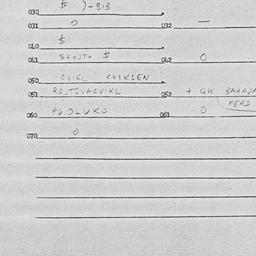 030 $ )-BIB
031 0 032 —
040 $
041 $HOJT+ $ 042 0
050 CVIKL CVIKLEN
051 ROJTOVACVIKL 052 + GW BAHAJA
FERD
060 PODLUKO 061 0
070 0